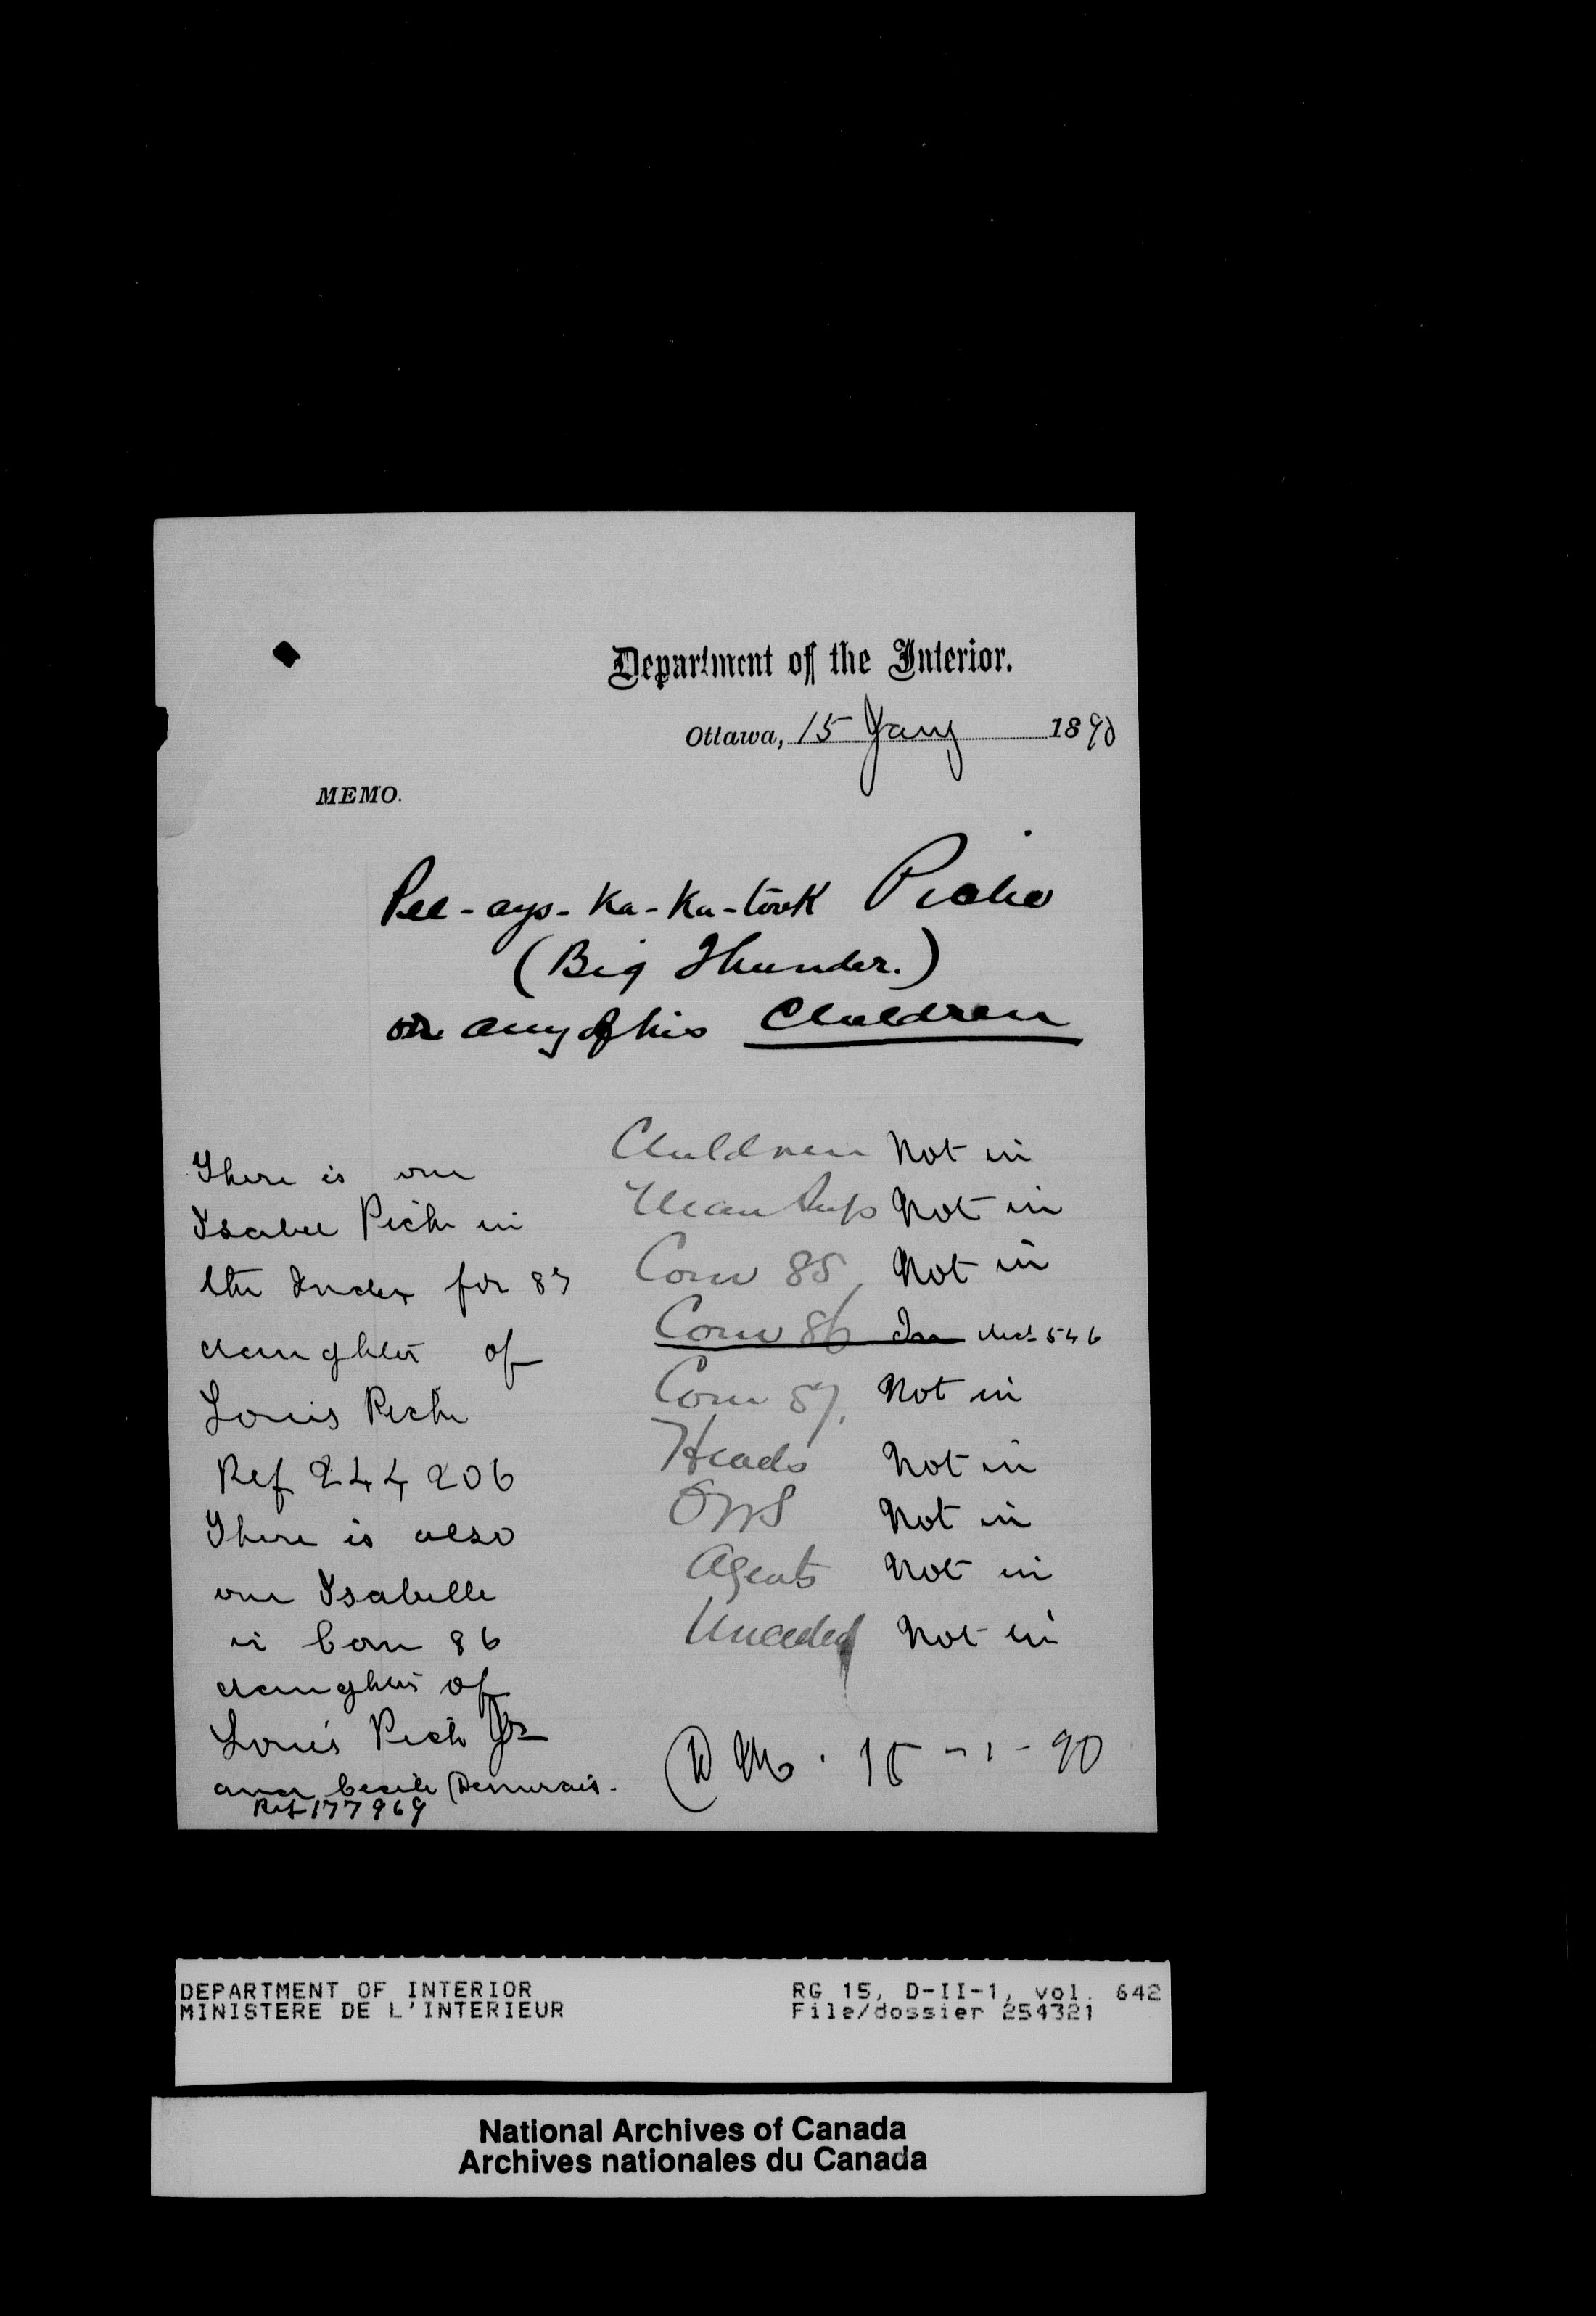 Department of the Interior.
Ottawa, 15 Jany 1890
MEMO.
Pee-ays-Ka-Ka-took Piche
(Big Thunder.)
or any of his Children
Children Not in
Not in
Com 85 Not in
Com 86 In 546
Com 87. Not in
Heads Not in
Not in
Agents Not in
Unceded Not in
15-1-90
There is one
Isabel Piche in
the Index for 87
daughter of
Louis Piche
Ref 244206
There is also
one Isabelle
in Com 86
daughter of
Louis Piche Jr
and Cecile Demerais.
Ref 177969
DEPARTMENT OF INTERIOR
MINISTERE DE L'INTERIEUR
RG 15, D-II-1, vol. 642
File/dossier 254321
National Archives of Canada
Archives nationales du Canada